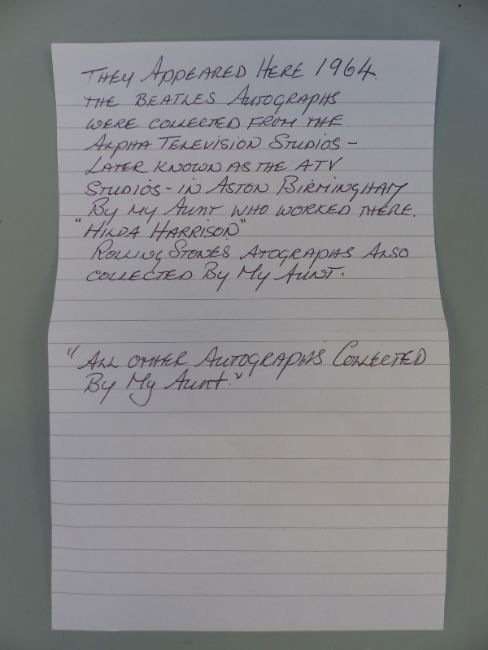 They Appeared Here 1964.
The Beatles Autographs
were collected from the
Alpha Television Studios -
Later known as the ATV
Studios - in Aston Birmingham
By my Aunt who worked there.
"Hilda Harrison"
Rolling Stones Atographs Also
collected By My Aunt.
"All other Autographs Collected
By My Aunt."